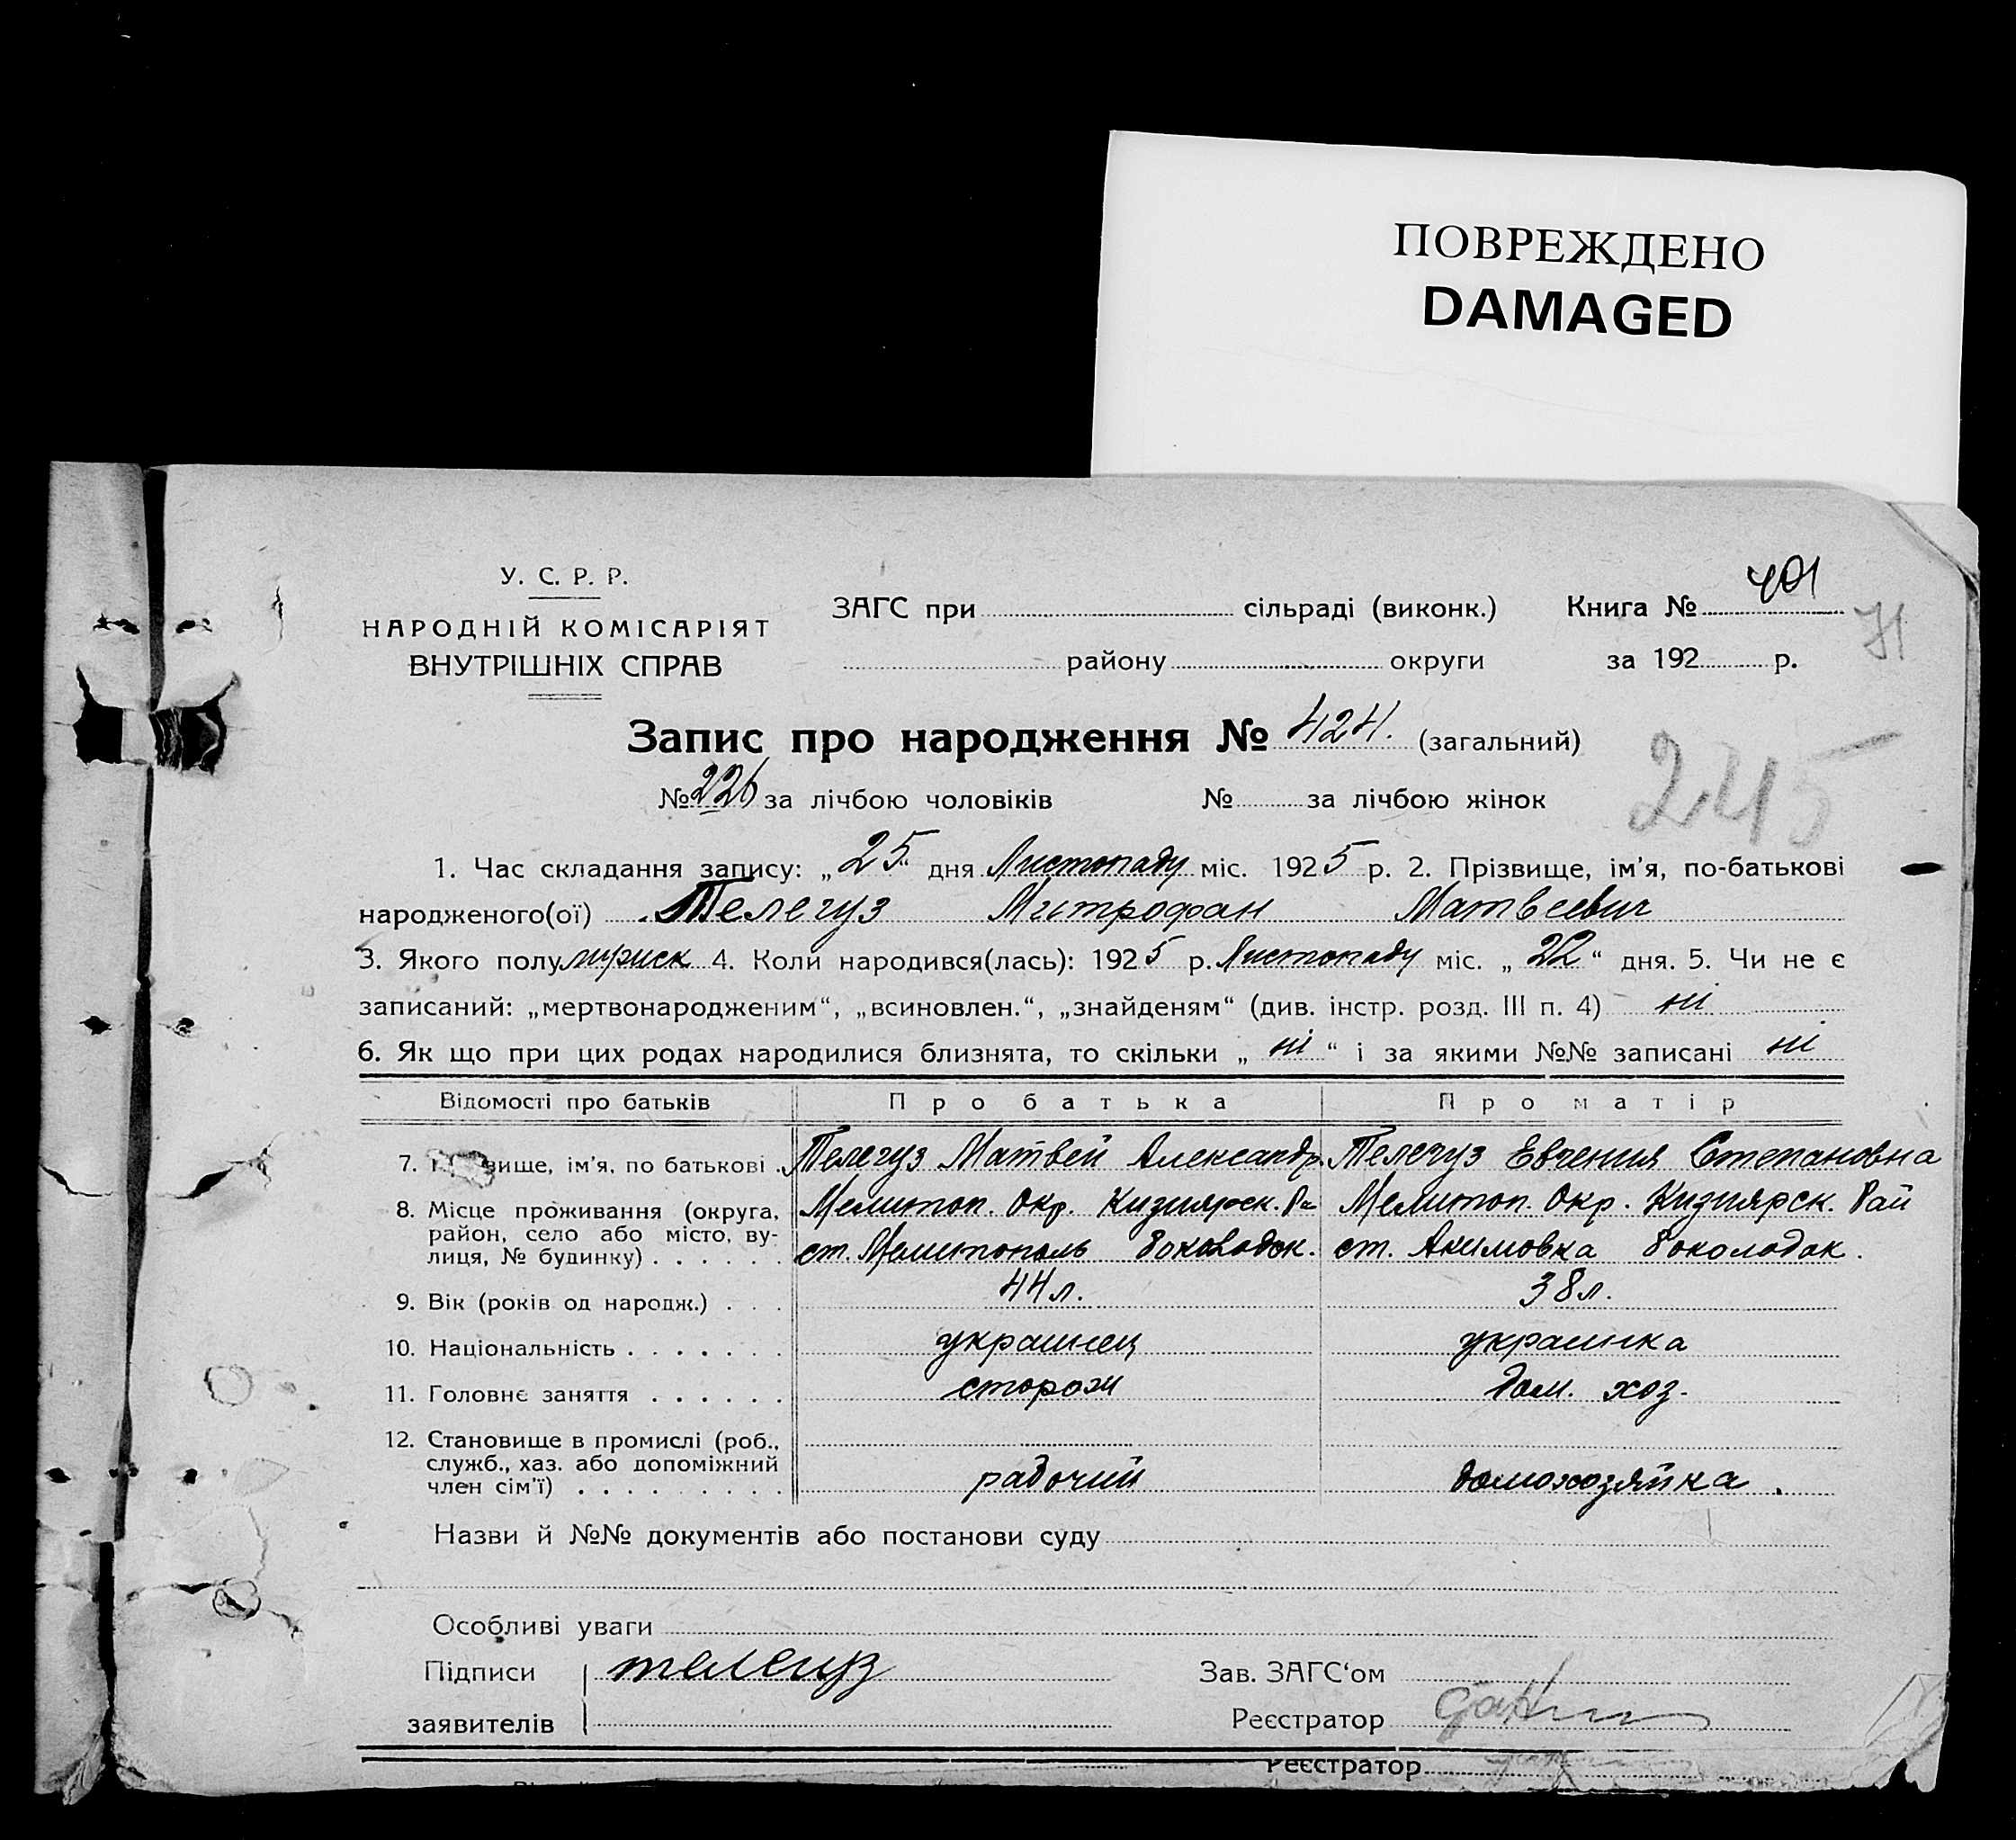 ПОВРЕЖДЕНО
DAMAGED
У. С. Р. Р.
НАРОДНІЙ КОМІСАРІЯТ
ВНУТРІШНІХ СПРАВ
ЗАГС при сільраді (виконк.) Книга № 401
71
району округи за 192 р.
Запис про народження № 424. (загальний)
245
№ 226 за лічбою чоловіків № за лічбою жінок
1. Час складання запису: „25“ дня Листопаду міс. 1925 р. 2. Прізвище, ім'я, по-батькові
народженого(ої) Телегуз Митрофан Матвеевич
3. Якого полу 4. Коли народився(лась): 1925 р. Листопаду міс. „22“ дня. 5. Чи не є
записаний: „мертвонародженим“, „всиновлен.“, „знайденям“ (див. інстр. розд. III п. 4) ні
6. Як що при цих родах народилися близнята, то скільки „ні“ і за якими №№ записані ні
Відомості про батьків Про батька Про матір
7. вище, ім'я, по батькові Телегуз Матвей Александр. Телегуз Евгения Степановна
8. Місце проживання (округа, район, село або місто, вулиця, № будинку) Мелитоп. Окр. Кизиярск. Ра Мелитоп. Окр. Кизиярск. Рай
ст. Мелитополь 8 околодок. ст. Акимовка 8 околодок.
9. Вік (років од народж.) 44 л. 38 л.
10. Національність украинец украинка
11. Головне заняття сторож дом. хоз.
12. Становище в промислі (роб., служб., хаз. або допоміжний член сім'ї) рабочий домохозяйка.
Назви й №№ документів або постанови суду
Особливі уваги
Підписи телегуз Зав. ЗАГС'ом
заявителів Реєстратор
Реєстратор